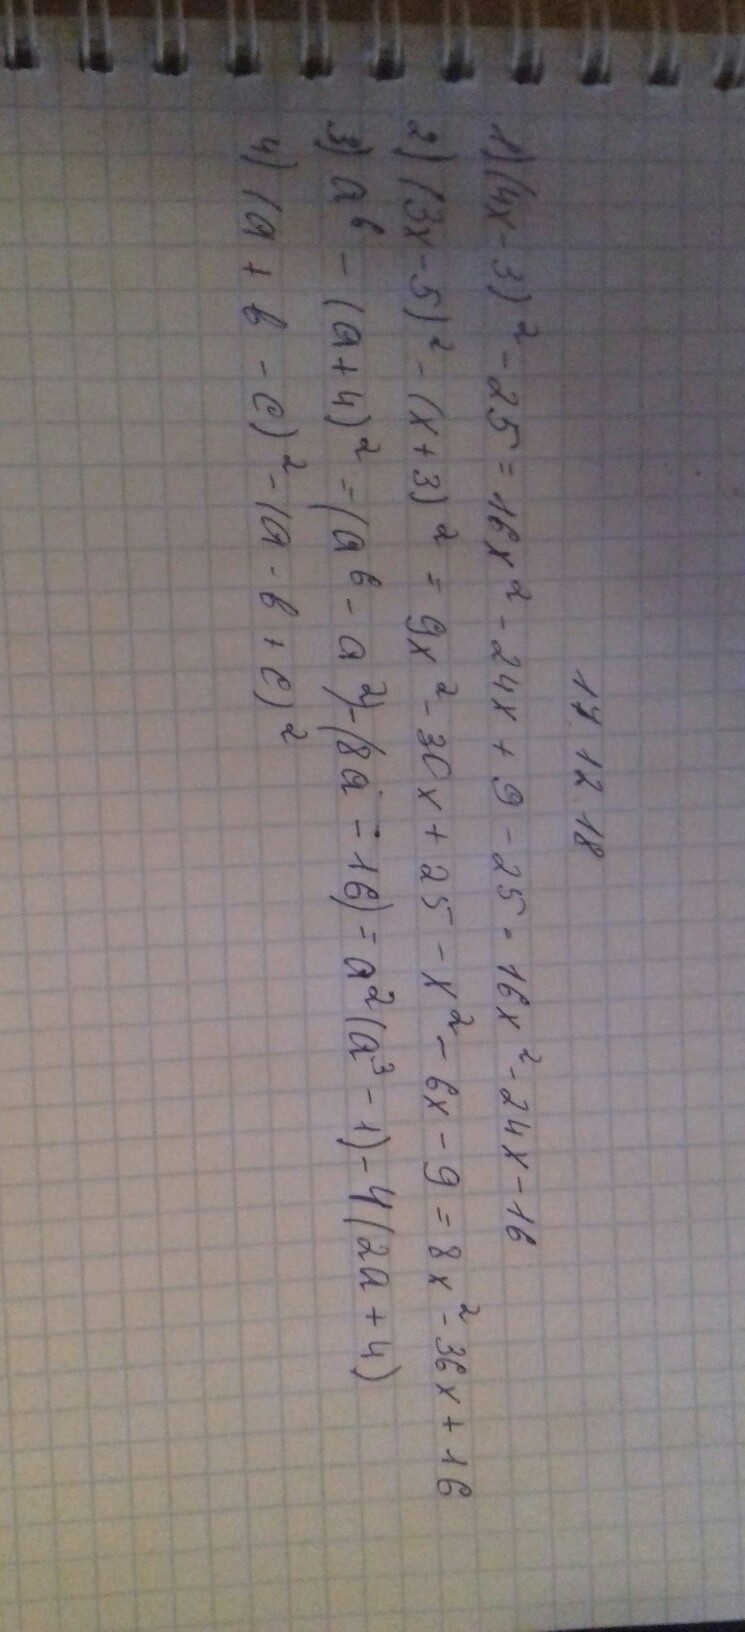 17.12.18
1) (4x-3)² - 25 = 16x² - 24x + 9 - 25 = 16x² - 24x - 16
2) (3x-5)² - (x+3)² = 9x² - 30x + 25 - x² - 6x - 9 = 8x² - 36x + 16
3) a⁶ - (a+4)² = (a⁶ - a²) - (8a - 16) = a²(a³ - 1) - 4(2a + 4)
4) (a + b - c)² - (a - b + c)²